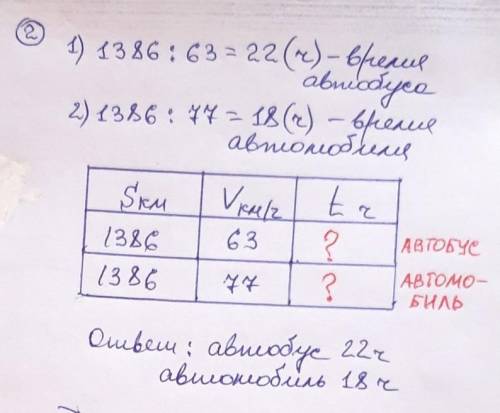 2
1) 1386 : 63 = 22 (ч) - время
автобуса
2) 1386 : 77 = 18 (ч) - время
автомобиля
Sкм Vкм/ч t ч
1386 63 ? АВТОБУС
1386 77 ? АВТОМО-
БИЛЬ
Ответ : автобус 22ч
автомобиль 18 ч